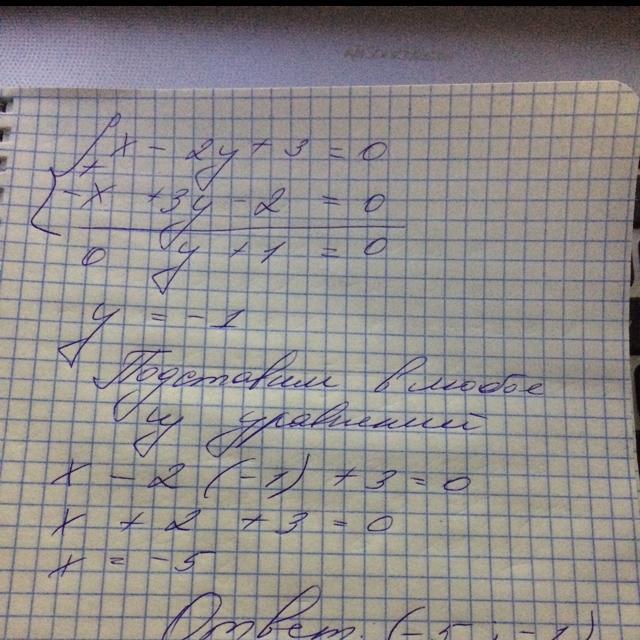 x - 2y + 3 = 0
+
-x + 3y - 2 = 0
0 y + 1 = 0
y = -1
Подставим в любое
из уравнений
x - 2 (-1) + 3 = 0
x + 2 + 3 = 0
x = -5
Ответ: (-5; -1)